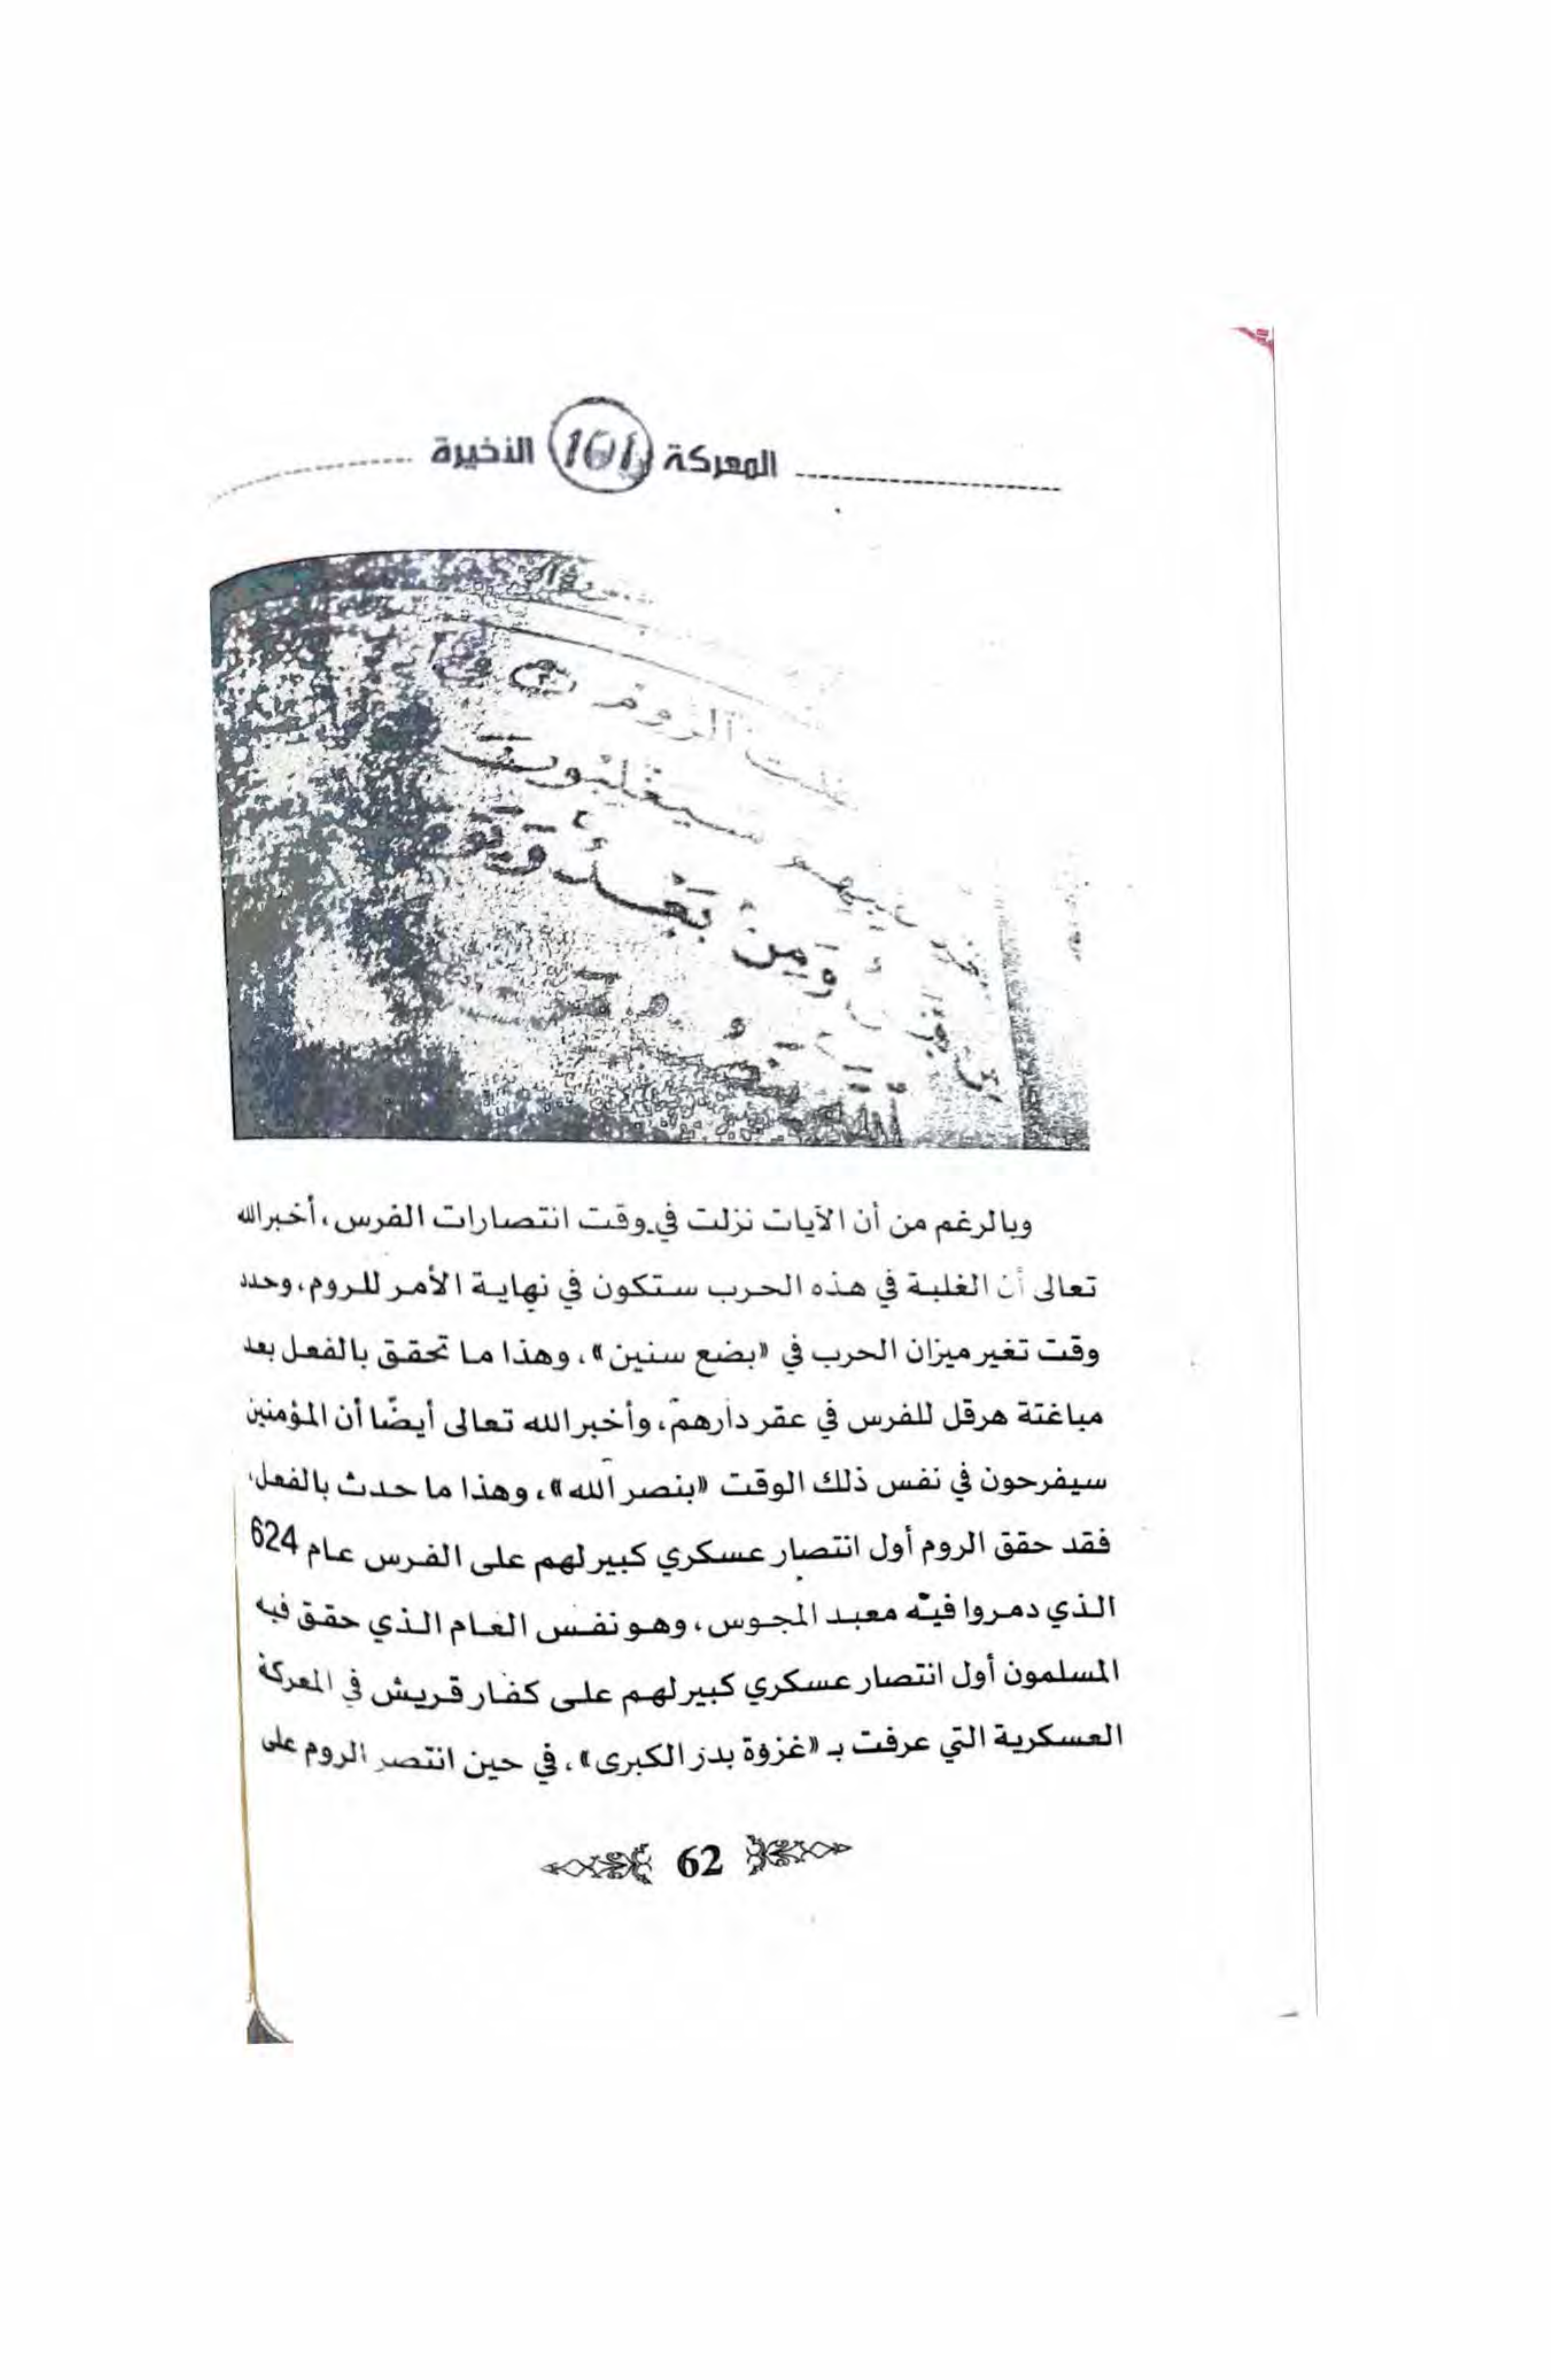 المعركة 101 الأخيرة
الروم
سيغلبون
ومن بعد
وبالرغم من أن الآيات نزلت في وقت انتصارات الفرس، أخبر الله
تعالى أن الغلبة في هذه الحرب ستكون في نهاية الأمر للروم، وحدد
وقت تغير ميزان الحرب في «بضع سنين»، وهذا ما تحقق بالفعل بعد
مباغتة هرقل للفرس في عقر دارهم، وأخبر الله تعالى أيضًا أن المؤمنين
سيفرحون في نفس ذلك الوقت «بنصر الله»، وهذا ما حدث بالفعل،
فقد حقق الروم أول انتصار عسكري كبير لهم على الفرس عام 624
الذي دمروا فيه معبد المجوس، وهو نفس العام الذي حقق فيه
المسلمون أول انتصار عسكري كبير لهم على كفار قريش في المعركة
العسكرية التي عرفت بـ «غزوة بدر الكبرى»، في حين انتصر الروم على
62